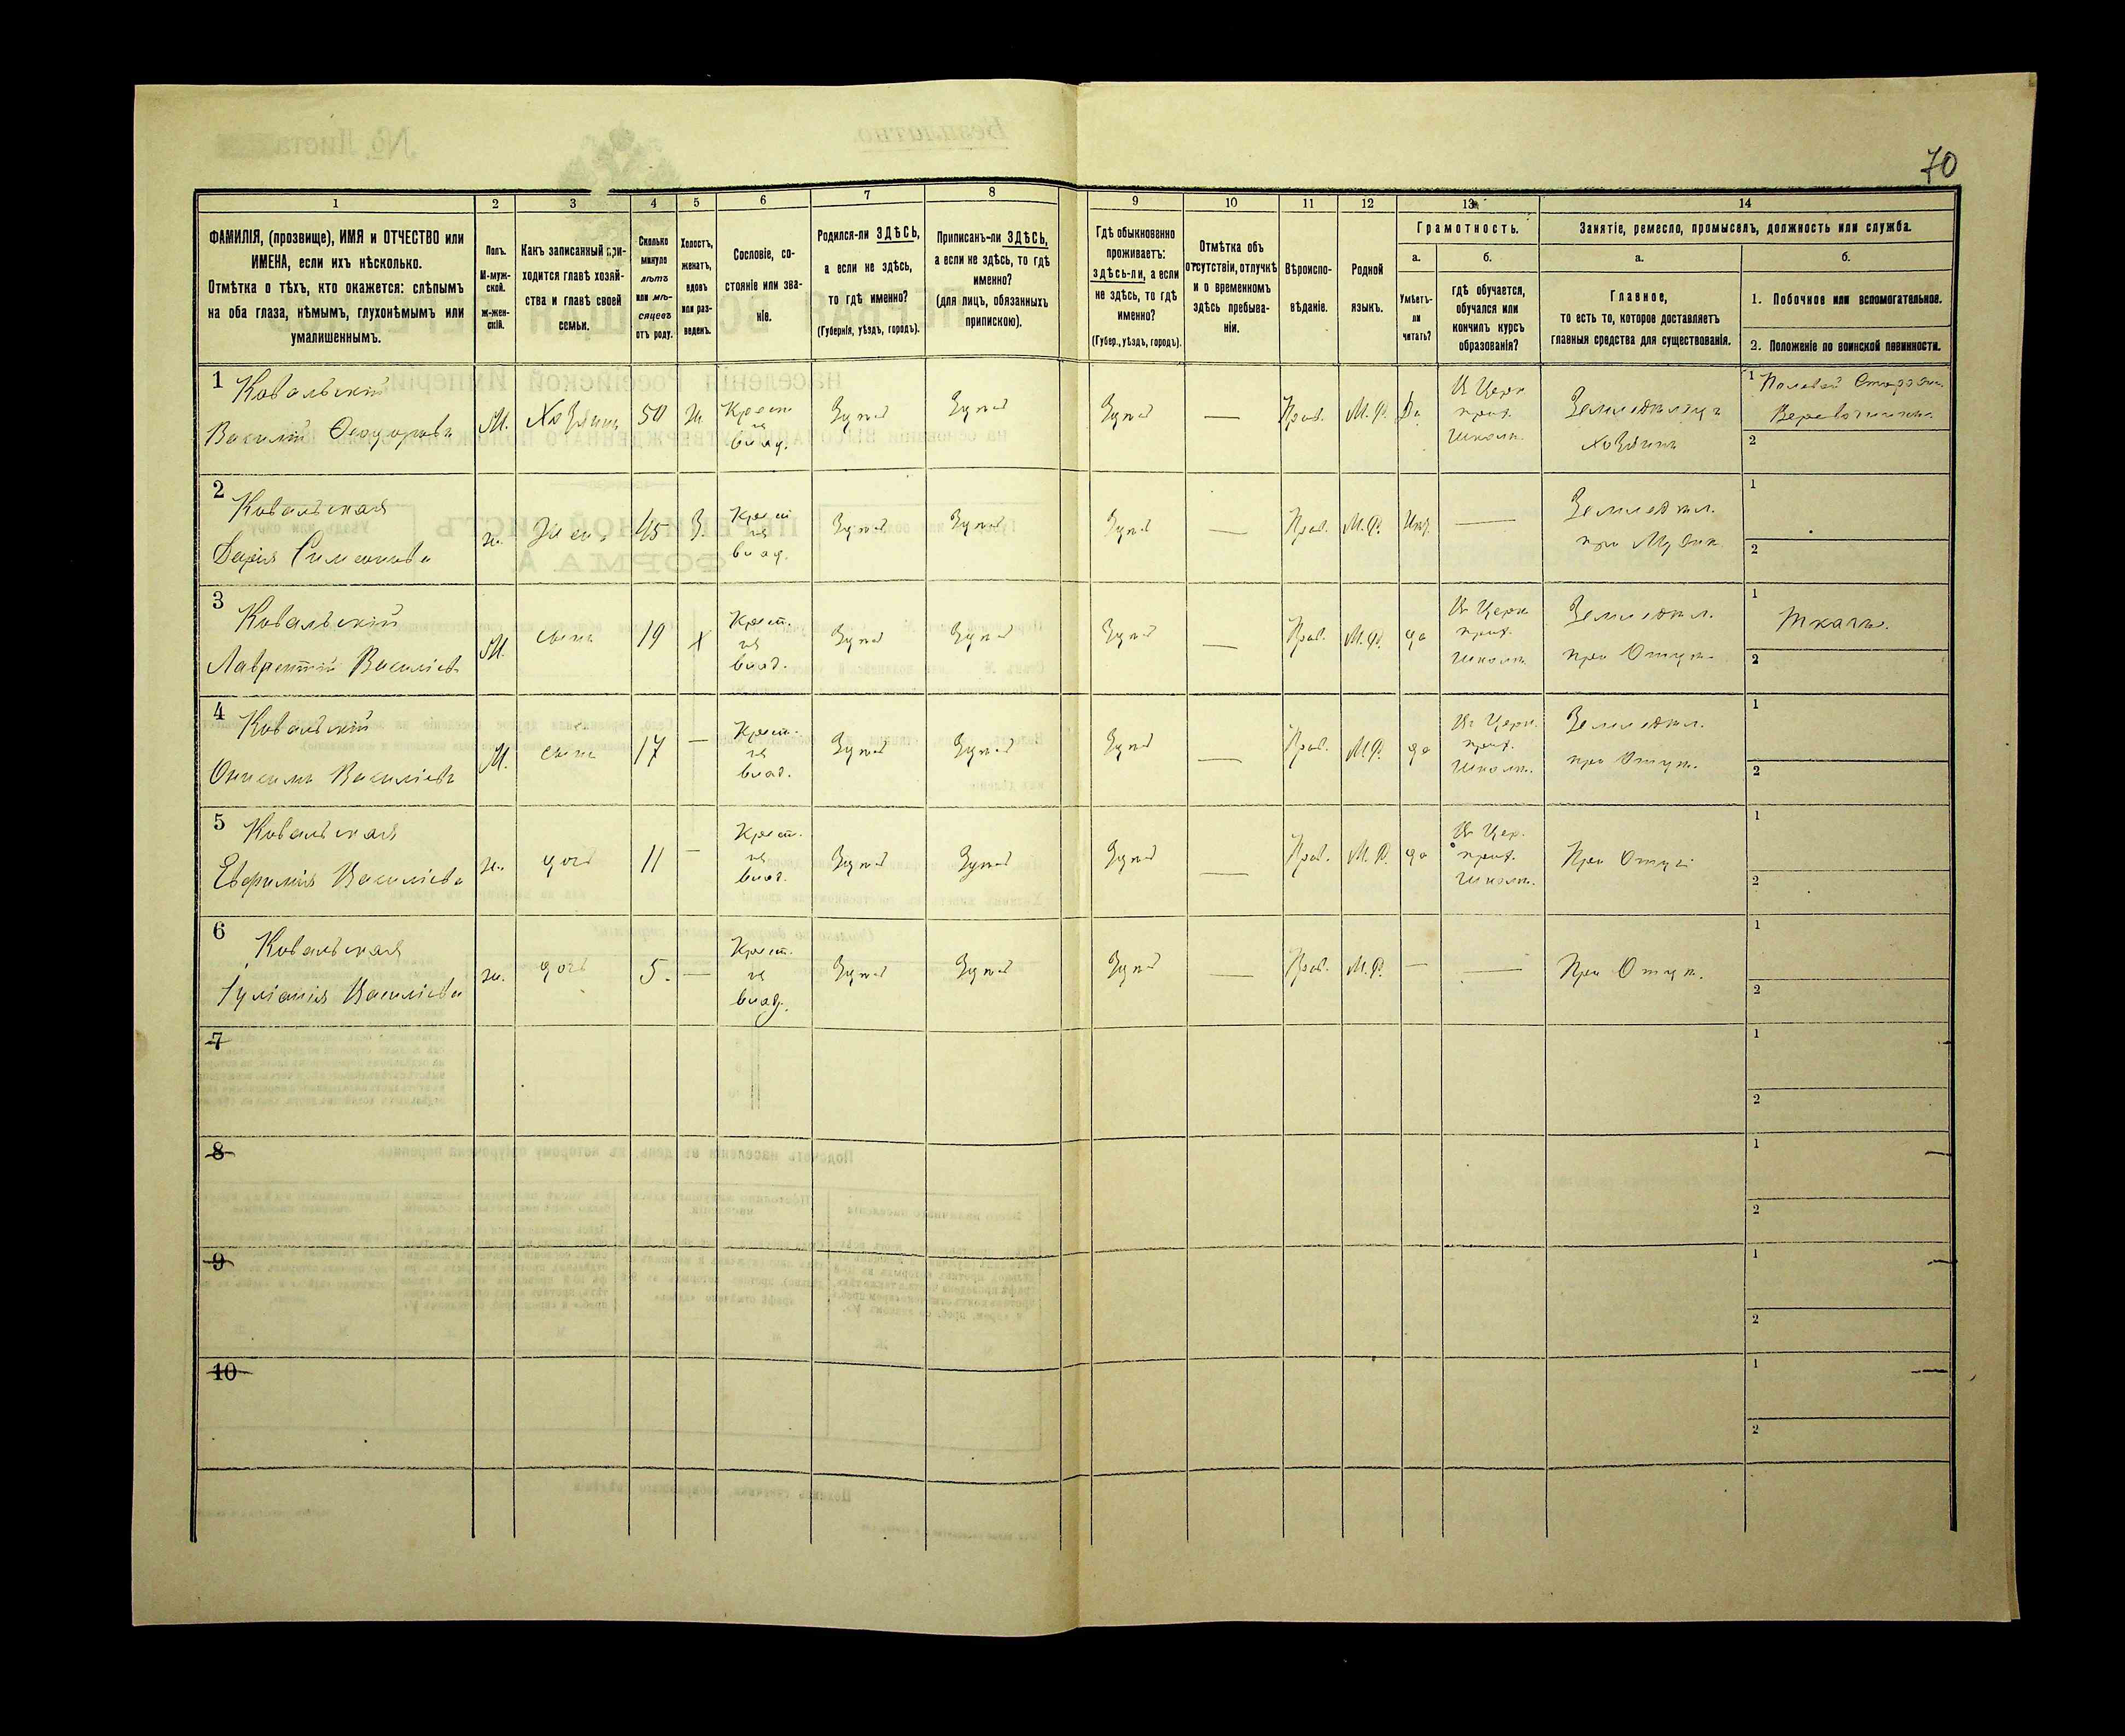 70
1
2
3
4
5
6
7
8
9
10
11
12
13
14
ФАМИЛІЯ, (прозвище), ИМЯ и ОТЧЕСТВО или
ИМЕНА, если ихъ нѣсколько.
Отмѣтка о тѣхъ, кто окажется: слѣпымъ
на оба глаза, нѣмымъ, глухонѣмымъ или
умалишеннымъ.
Полъ.
М-муж-
ской.
ж-жен-
скій.
Какъ записанный при-
ходится главѣ хозяй-
ства и главѣ своей
семьи.
Сколько
минуло
лѣтъ
или мѣ-
сяцевъ
отъ роду.
Холостъ,
женатъ,
вдовъ
или раз-
веденъ.
Сословіе, со-
стояніе или зва-
ніе.
Родился-ли ЗДѢСЬ,
а если не здѣсь,
то гдѣ именно?
(Губернія, уѣздъ, городъ).
Приписанъ-ли ЗДѢСЬ,
а если не здѣсь, то гдѣ
именно?
(для лицъ, обязанныхъ
припискою).
Гдѣ обыкновенно
проживаетъ:
здѣсь-ли, а если
не здѣсь, то гдѣ
именно?
(Губер., уѣздъ, городъ).
Отмѣтка объ
отсутствіи, отлучкѣ
и о временномъ
здѣсь пребыва-
ніи.
Вѣроиспо-
вѣданіе.
Родной
языкъ.
Грамотность.
а.
Умѣетъ-
ли
читать?
б.
гдѣ обучается,
обучался или
кончилъ курсъ
образованія?
Занятіе, ремесло, промыселъ, должность или служба.
а.
Главное,
то есть то, которое доставляетъ
главныя средства для существованія.
б.
1. Побочное или вспомогательное.
2. Положеніе по воинской повинности.
1 Ковальскій
Василій Ѳеодоровъ
М.
Хозяинъ
50
Ж
Крест
изъ
влад.
Здѣсь
Здѣсь
Здѣсь
—
Прав.
М. Р.
Да
В Церк
прих.
школѣ.
Земледѣлецъ
хозяинъ
1 Полевой
2
2 Ковальская
Дарія Симеонова
ж.
Жена
45
З.
Крест
изъ
влад.
Здѣсь
Здѣсь
Здѣсь
—
Прав.
М. Р.
Нѣт
—
Земледѣл.
при Мужѣ
1
2
3 Ковальскій
Лаврентій Василіевъ
М.
сынъ
19
х
Крест.
изъ
влад.
Здѣсь
Здѣсь
Здѣсь
—
Прав.
М. Р.
да
В Церк
прих.
школѣ
Земледѣл.
при Отцѣ
1 Ткачъ.
2
4 Ковальскій
Онисимъ Василіевъ
М.
сынъ
17
—
Крест.
изъ
влад.
Здѣсь
Здѣсь
Здѣсь
—
Прав.
М. Р.
да
В Церк.
прих.
школѣ.
Земледѣл.
при Отцѣ.
1
2
5 Ковальская
Евфимія Василіева
ж.
дочь
11
—
Крест.
изъ
влад.
Здѣсь
Здѣсь
Здѣсь
—
Прав.
М. Р.
да
В Цер.
прих.
школѣ.
При Отцѣ
1
2
6 Ковальская
Іуліанія Василіева
ж.
дочь
5.
—
Крест.
изъ
влад.
Здѣсь
Здѣсь
Здѣсь
—
Прав.
М. Р.
—
—
При Отцѣ.
1
2
7
1
2
8
1
2
9
1
2
10
1
2